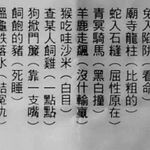 兔入陷阱（看命）
廟寺龍柱（比粗的）
蛇入石縫（屈性原在）
青冥騎馬（黑白撞）
羊鹿走飆（沒什輸贏）
猴吃哇沙米（白目）
查某人飼雞（一點點）
狗掀門簾（靠一支嘴）
飼飽的豬（死睡）
龜跌落水（結冤仇